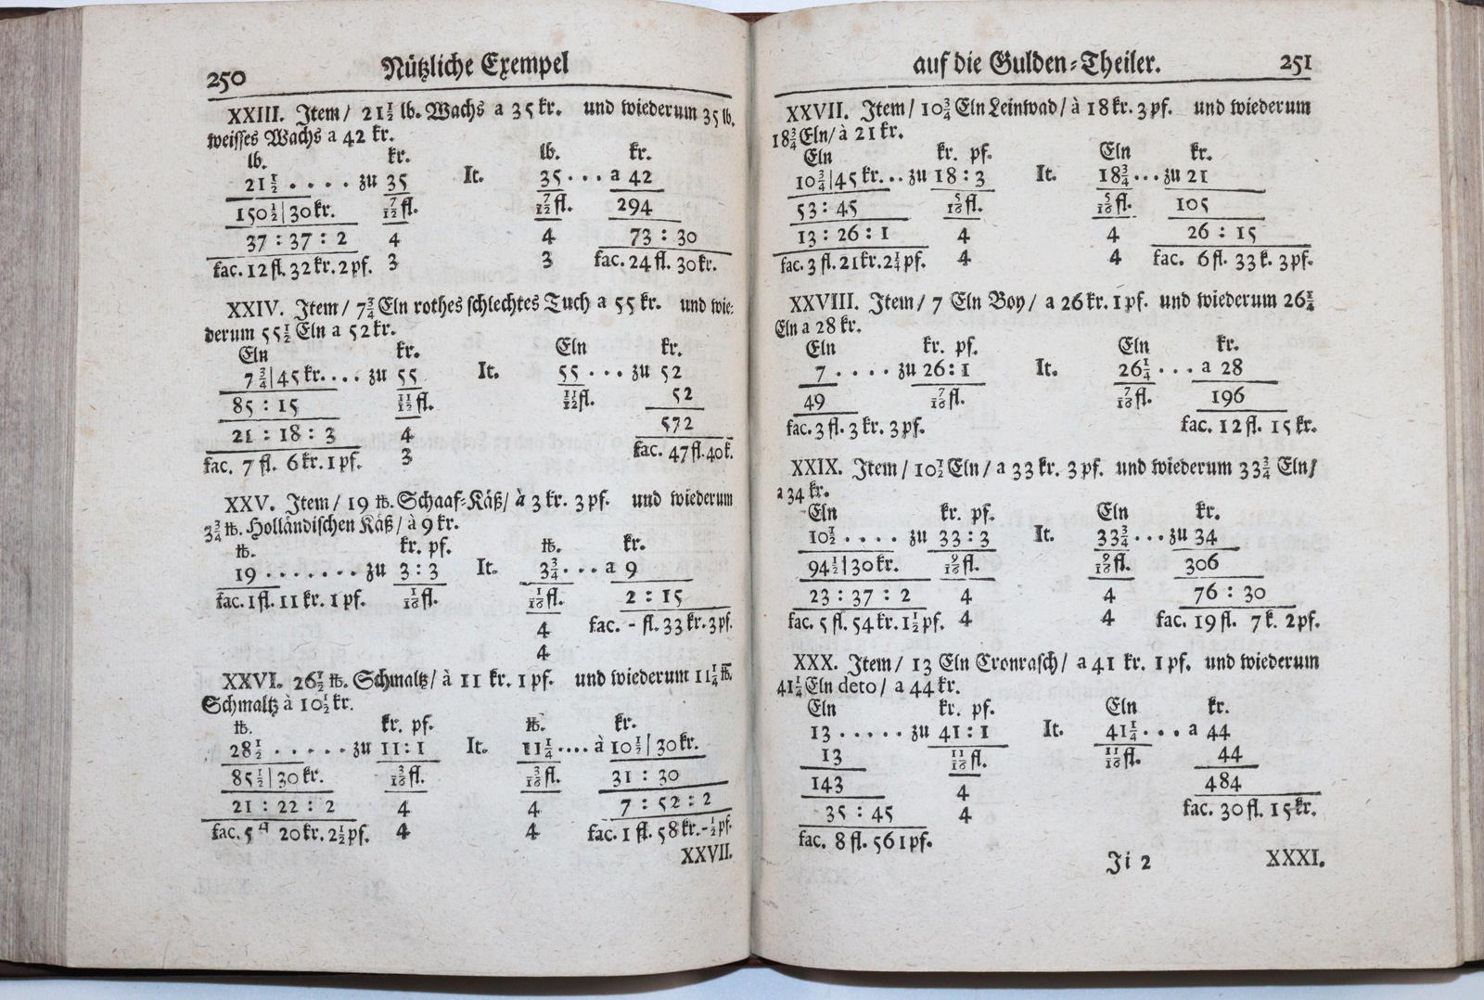 250 Nützliche Exempel
XXIII. Item/ 21½ lb. Wachs a 35 kr. und wiederum 35 lb.
weisses Wachs a 42 kr.
lb. kr. lb. kr.
21½ . . . . zu 35 It. 35 . . . a 42
150½|30kr. 7/12 fl. 7/12 fl. 294
37 : 37 : 2 4 4 73 : 30
fac. 12 fl. 32 kr. 2 pf. 3 3 fac. 24 fl. 30 kr.
XXIV. Item/ 7¾ Eln rothes schlechtes Tuch a 55 kr. und wie-
derum 55½ Eln a 52 kr.
Eln kr. Eln kr.
7¾|45 kr. . . . zu 55 It. 55 . . . zu 52
85 : 15 11/12 fl. 11/12 fl. 52
21 : 18 : 3 4 572
fac. 7 fl. 6 kr. 1 pf. 3 fac. 47 fl. 40 k.
XXV. Item/ 19 ℔. Schaaf-Käß/ à 3 kr. 3 pf. und wiederum
3¾ ℔. Holländischen Käß/ à 9 kr.
℔. kr. pf. ℔. kr.
19 . . . . . . . zu 3 : 3 It. 3¾ . . . a 9
fac. 1 fl. 11 kr. 1 pf. 1/16 fl. 1/16 fl. 2 : 15
4 fac. - fl. 33 kr. 3 pf.
4
XXVI. 26½ ℔. Schmaltz/ à 11 kr. 1 pf. und wiederum 11¼ ℔.
Schmaltz à 10½ kr.
℔. kr. pf. ℔. kr.
28½ . . . . . zu 11 : 1 It. 11¼ . . . . à 10½|30 kr.
85½|30 kr. 3/16 fl. 3/16 fl. 31 : 30
21 : 22 : 2 4 4 7 : 52 : 2
fac. 5 fl 20 kr. 2½ pf. 4 4 fac. 1 fl. 58 kr. - ½ pf.
XXVII.
auf die Gulden-Theiler. 251
XXVII. Item/ 10¾ Eln Leinwad/ à 18 kr. 3 pf. und wiederum
18¾ Eln/ à 21 kr.
Eln kr. pf. Eln kr.
10¾|45 kr. . . zu 18 : 3 It. 18¾ . . . zu 21
53 : 45 5/16 fl. 5/16 fl. 105
13 : 26 : 1 4 4 26 : 15
fac. 3 fl. 21 kr. 2¼ pf. 4 4 fac. 6 fl. 33 k. 3 pf.
XXVIII. Item/ 7 Eln Boy/ a 26 kr. 1 pf. und wiederum 26¼
Eln a 28 kr.
Eln kr. pf. Eln kr.
7 . . . . zu 26 : 1 It. 26¼ . . . a 28
49 7/16 fl. 7/16 fl. 196
fac. 3 fl. 3 kr. 3 pf. fac. 12 fl. 15 kr.
XXIX. Item/ 10½ Eln/ a 33 kr. 3 pf. und wiederum 33¾ Eln/
a 34 kr.
Eln kr. pf. Eln kr.
10½ . . . . . zu 33 : 3 It. 33¾ . . . zu 34
94½|30 kr. 9/16 fl. 9/16 fl. 306
23 : 37 : 2 4 4 76 : 30
fac. 5 fl. 54 kr. 1½ pf. 4 4 fac. 19 fl. 7 k. 2 pf.
XXX. Item/ 13 Eln Cronrasch/ a 41 kr. 1 pf. und wiederum
41¼ Eln deto/ a 44 kr.
Eln kr. pf. Eln kr.
13 . . . . . zu 41 : 1 It. 41¼ . . . a 44
13 11/16 fl. 11/16 fl. 44
143 4 484
35 : 45 4 fac. 30 fl. 15 kr.
fac. 8 fl. 56 1 pf.
Ji 2 XXXI.